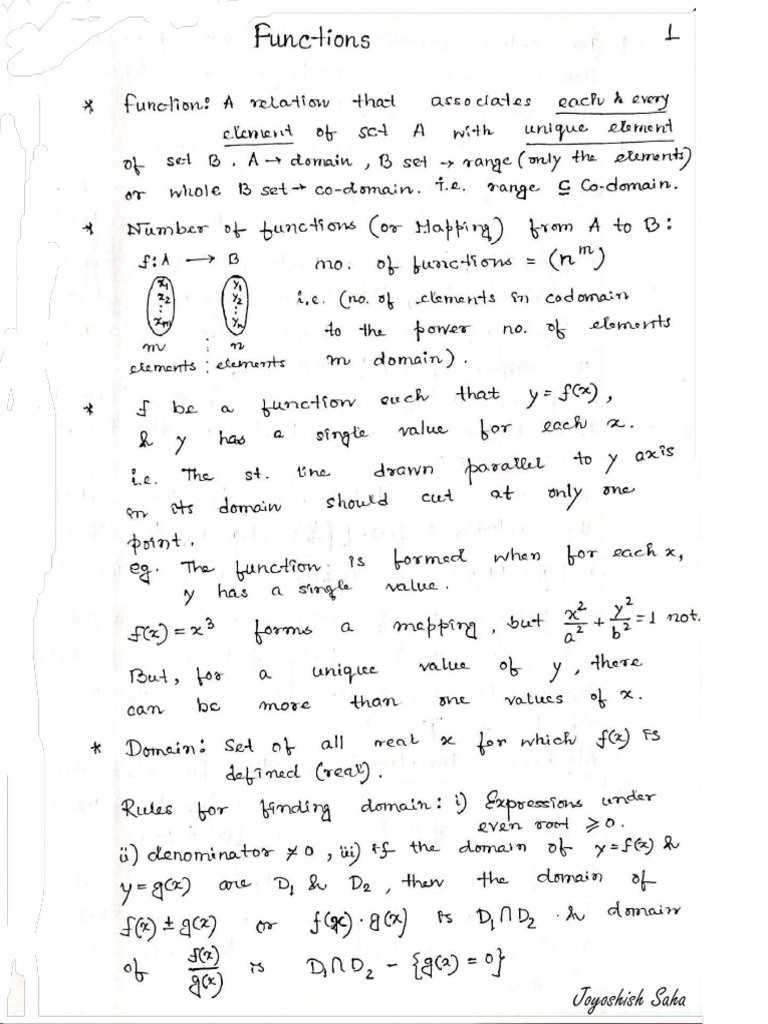 Functions 1
* Function: A relation that associates each & every
element of set A with unique element
of set B. A → domain, B set → range (only the elements)
or whole B set → co-domain. i.e. range ⊆ Co-domain.
* Number of functions (or Mapping) from A to B:
f: A → B no. of functions = (n^m)
x1 x2 ⋮ xm y1 y2 ⋮ yn i.e. (no. of elements in codomain
m n to the power no. of elements
elements elements in domain).
* f be a function such that y = f(x),
& y has a single value for each x.
i.e. The st. line drawn parallel to y axis
in its domain should cut at only one
point.
eg. The function is formed when for each x,
y has a single value.
f(x) = x^3 forms a mapping, but x^2/a^2 + y^2/b^2 = 1 not.
But, for a unique value of y, there
can be more than one values of x.
* Domain: Set of all real x for which f(x) is
defined (real).
Rules for finding domain: i) Expressions under
even root ≥ 0.
ii) denominator ≠ 0, iii) if the domain of y = f(x) &
y = g(x) are D1 & D2, then the domain of
f(x) ± g(x) or f(x) · g(x) is D1 ∩ D2 & domain
of f(x)/g(x) is D1 ∩ D2 - {g(x) = 0}
Joyoshish Saha